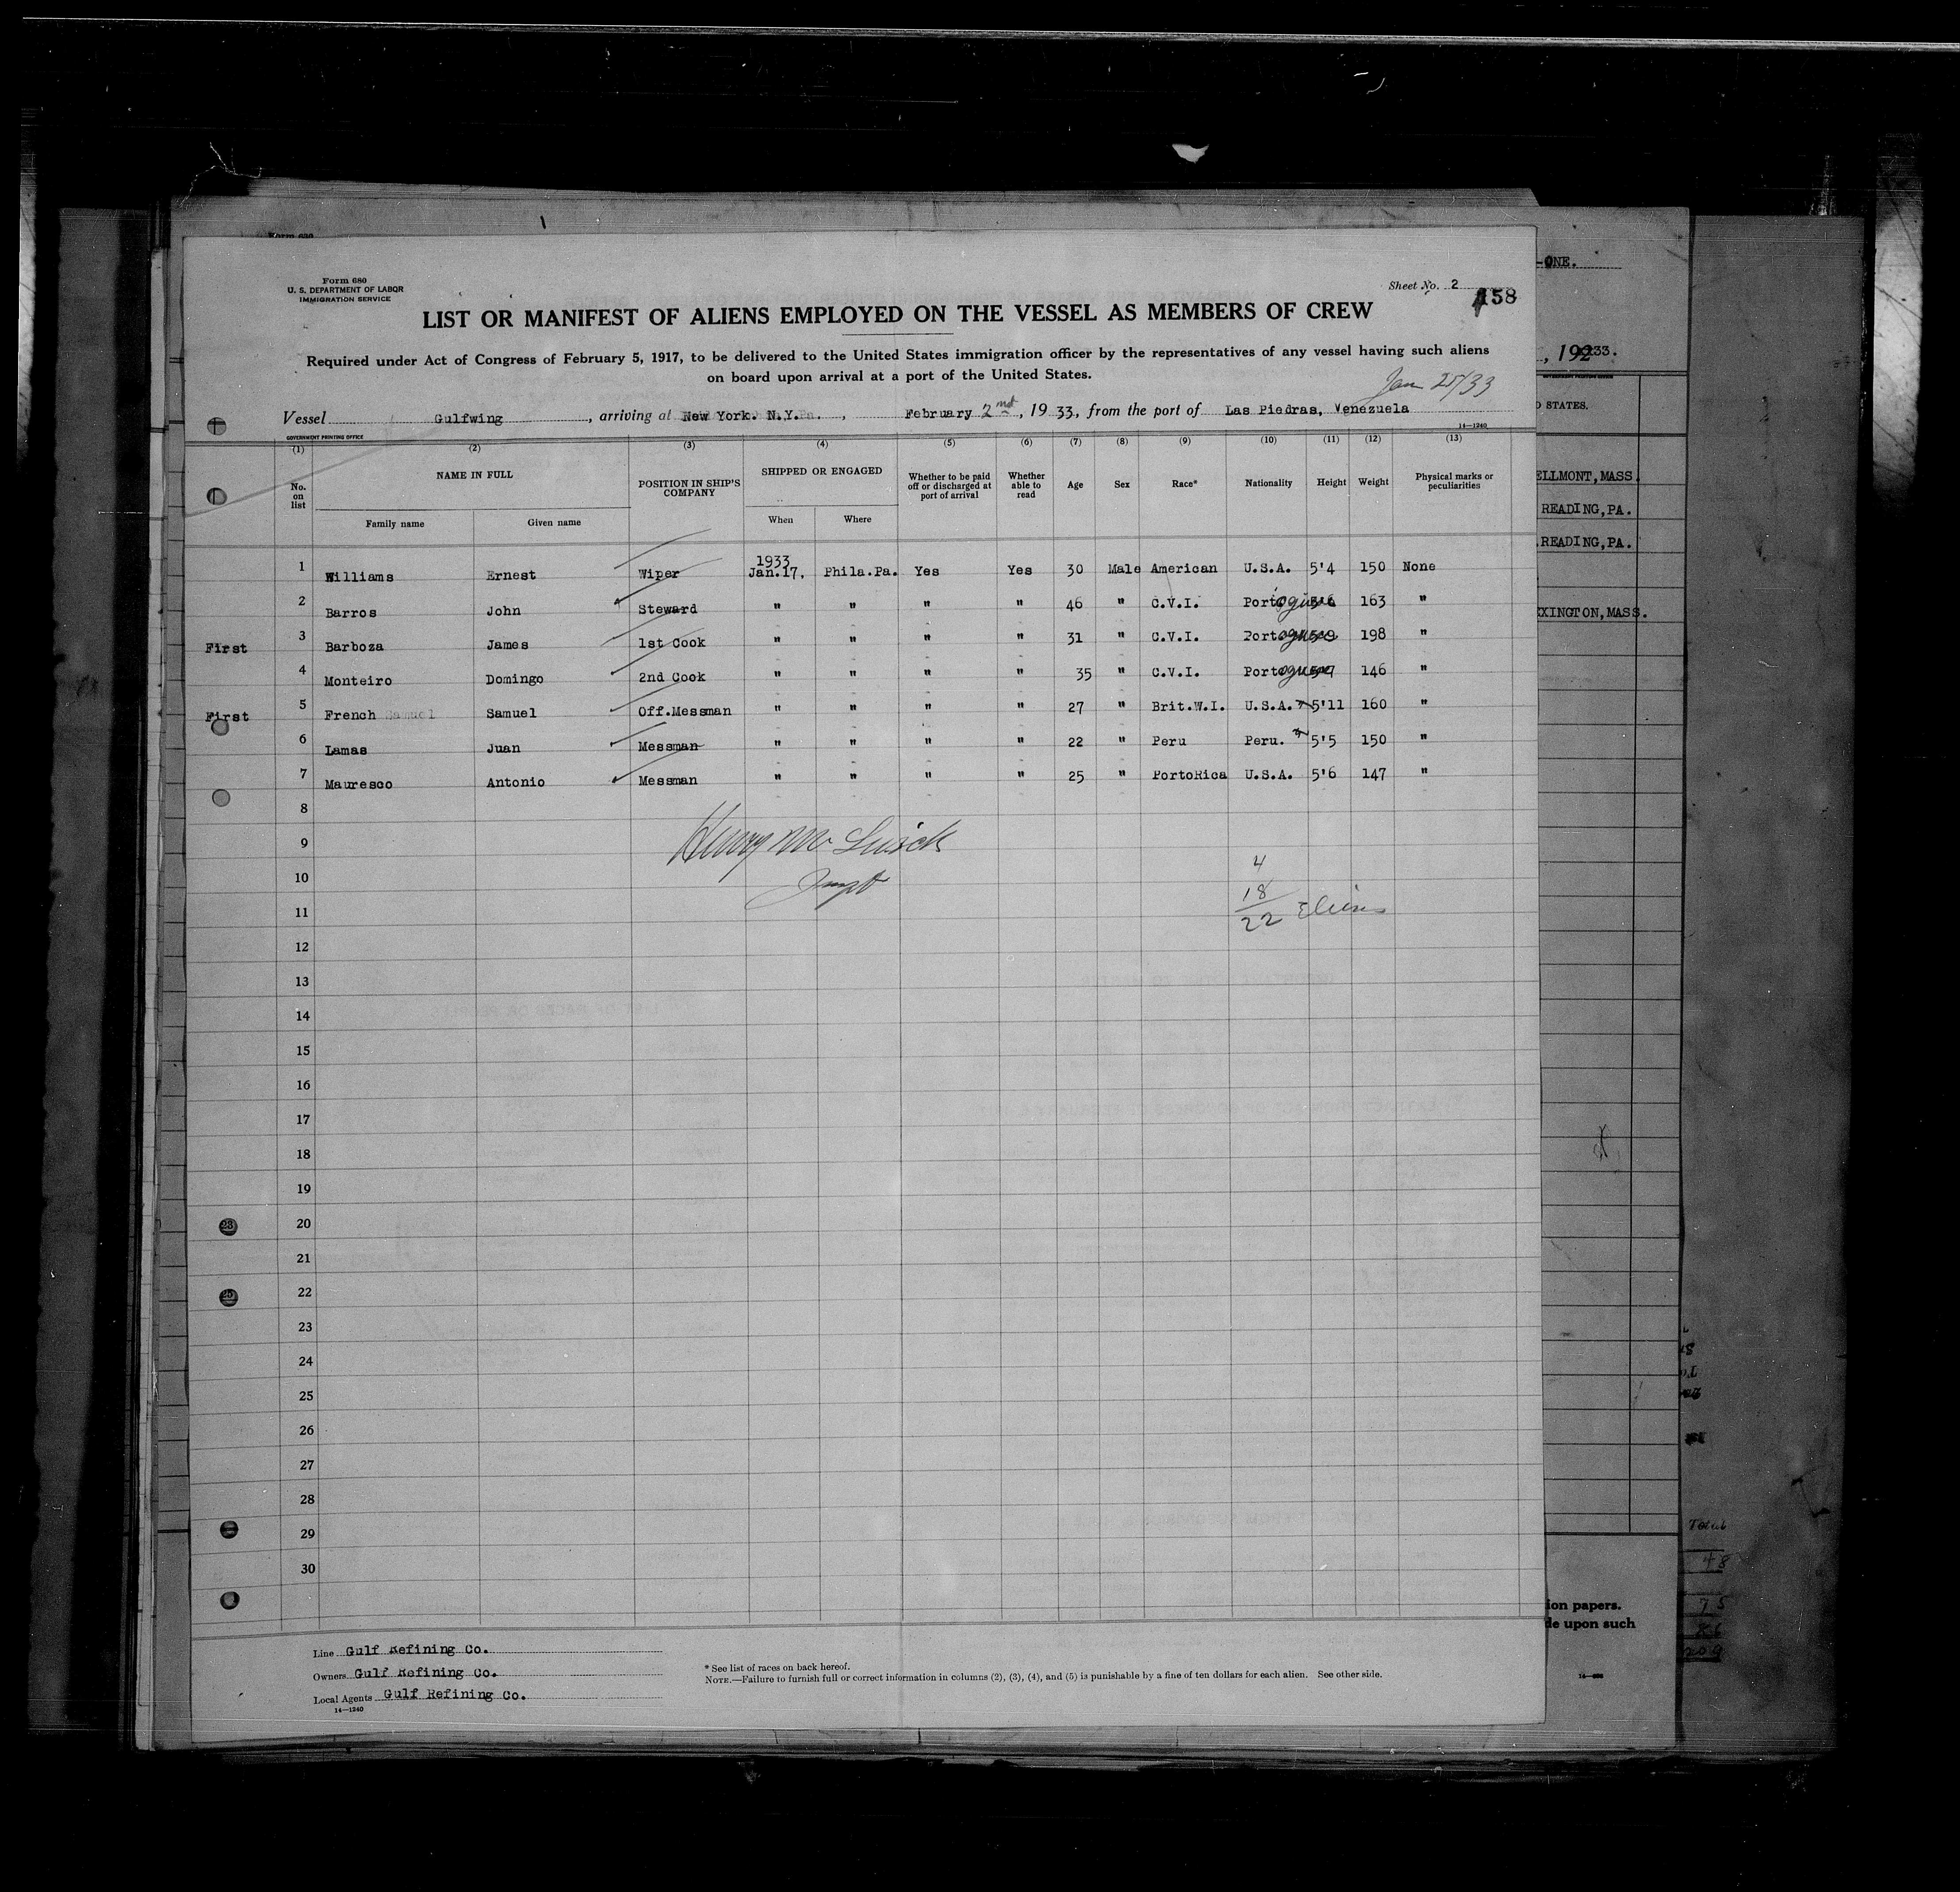 Form 680
U. S. DEPARTMENT OF LABOR
IMMIGRATION SERVICE
Sheet No. 2
158
LIST OR MANIFEST OF ALIENS EMPLOYED ON THE VESSEL AS MEMBERS OF CREW
Required under Act of Congress of February 5, 1917, to be delivered to the United States immigration officer by the representatives of any vessel having such aliens
on board upon arrival at a port of the United States.
Jan 25/33
Vessel Gulfwing, arriving at New York. N.Y., February 2nd, 1933, from the port of Las Piedras, Venezuela
GOVERNMENT PRINTING OFFICE
14—1240
(1) (2) (3) (4) (5) (6) (7) (8) (9) (10) (11) (12) (13)
No. on list NAME IN FULL Family name Given name POSITION IN SHIP'S COMPANY SHIPPED OR ENGAGED When Where Whether to be paid off or discharged at port of arrival Whether able to read Age Sex Race* Nationality Height Weight Physical marks or peculiarities
1933
1 Williams Ernest Wiper Jan.17, Phila.Pa. Yes Yes 30 Male American U.S.A. 5'4 150 None
2 Barros John Steward " " " " 46 " C.V.I. Portoguese 163 "
First 3 Barboza James 1st Cook " " " " 31 " C.V.I. Portoguese 5'9 198 "
4 Monteiro Domingo 2nd Cook " " " " 35 " C.V.I. Portoguese 5'7 146 "
First 5 French Samuel Samuel Off.Messman " " " " 27 " Brit.W.I. U.S.A. 5'11 160 "
6 Lamas Juan Messman " " " " 22 " Peru Peru. 5'5 150 "
7 Mauresco Antonio Messman " " " " 25 " PortoRica U.S.A. 5'6 147 "
8
9 Henry
10 4
18
11 22
12
13
14
15
16
17
18
19
20
21
22
23
24
25
26
27
28
29
30
Line Gulf Refining Co.
Owners Gulf Refining Co.
Local Agents Gulf Refining Co.
14—1240
* See list of races on back hereof.
NOTE.—Failure to furnish full or correct information in columns (2), (3), (4), and (5) is punishable by a fine of ten dollars for each alien. See other side.
-ONE.
, 192 33.
STATES.
ELLMONT, MASS.
READING, PA.
READING, PA.
XINGTON, MASS.
ion papers.
de upon such
Total
48
75
86
209